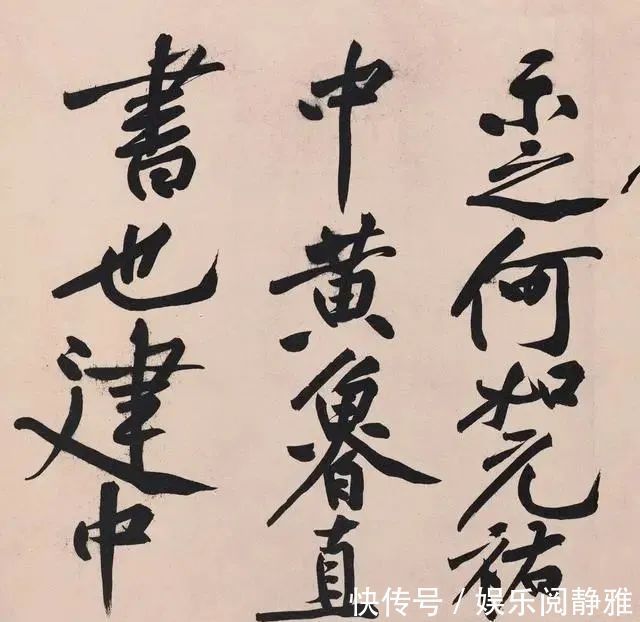 示之何如元祐
中黄魯直
書也建中
快传号/娱乐阅静雅